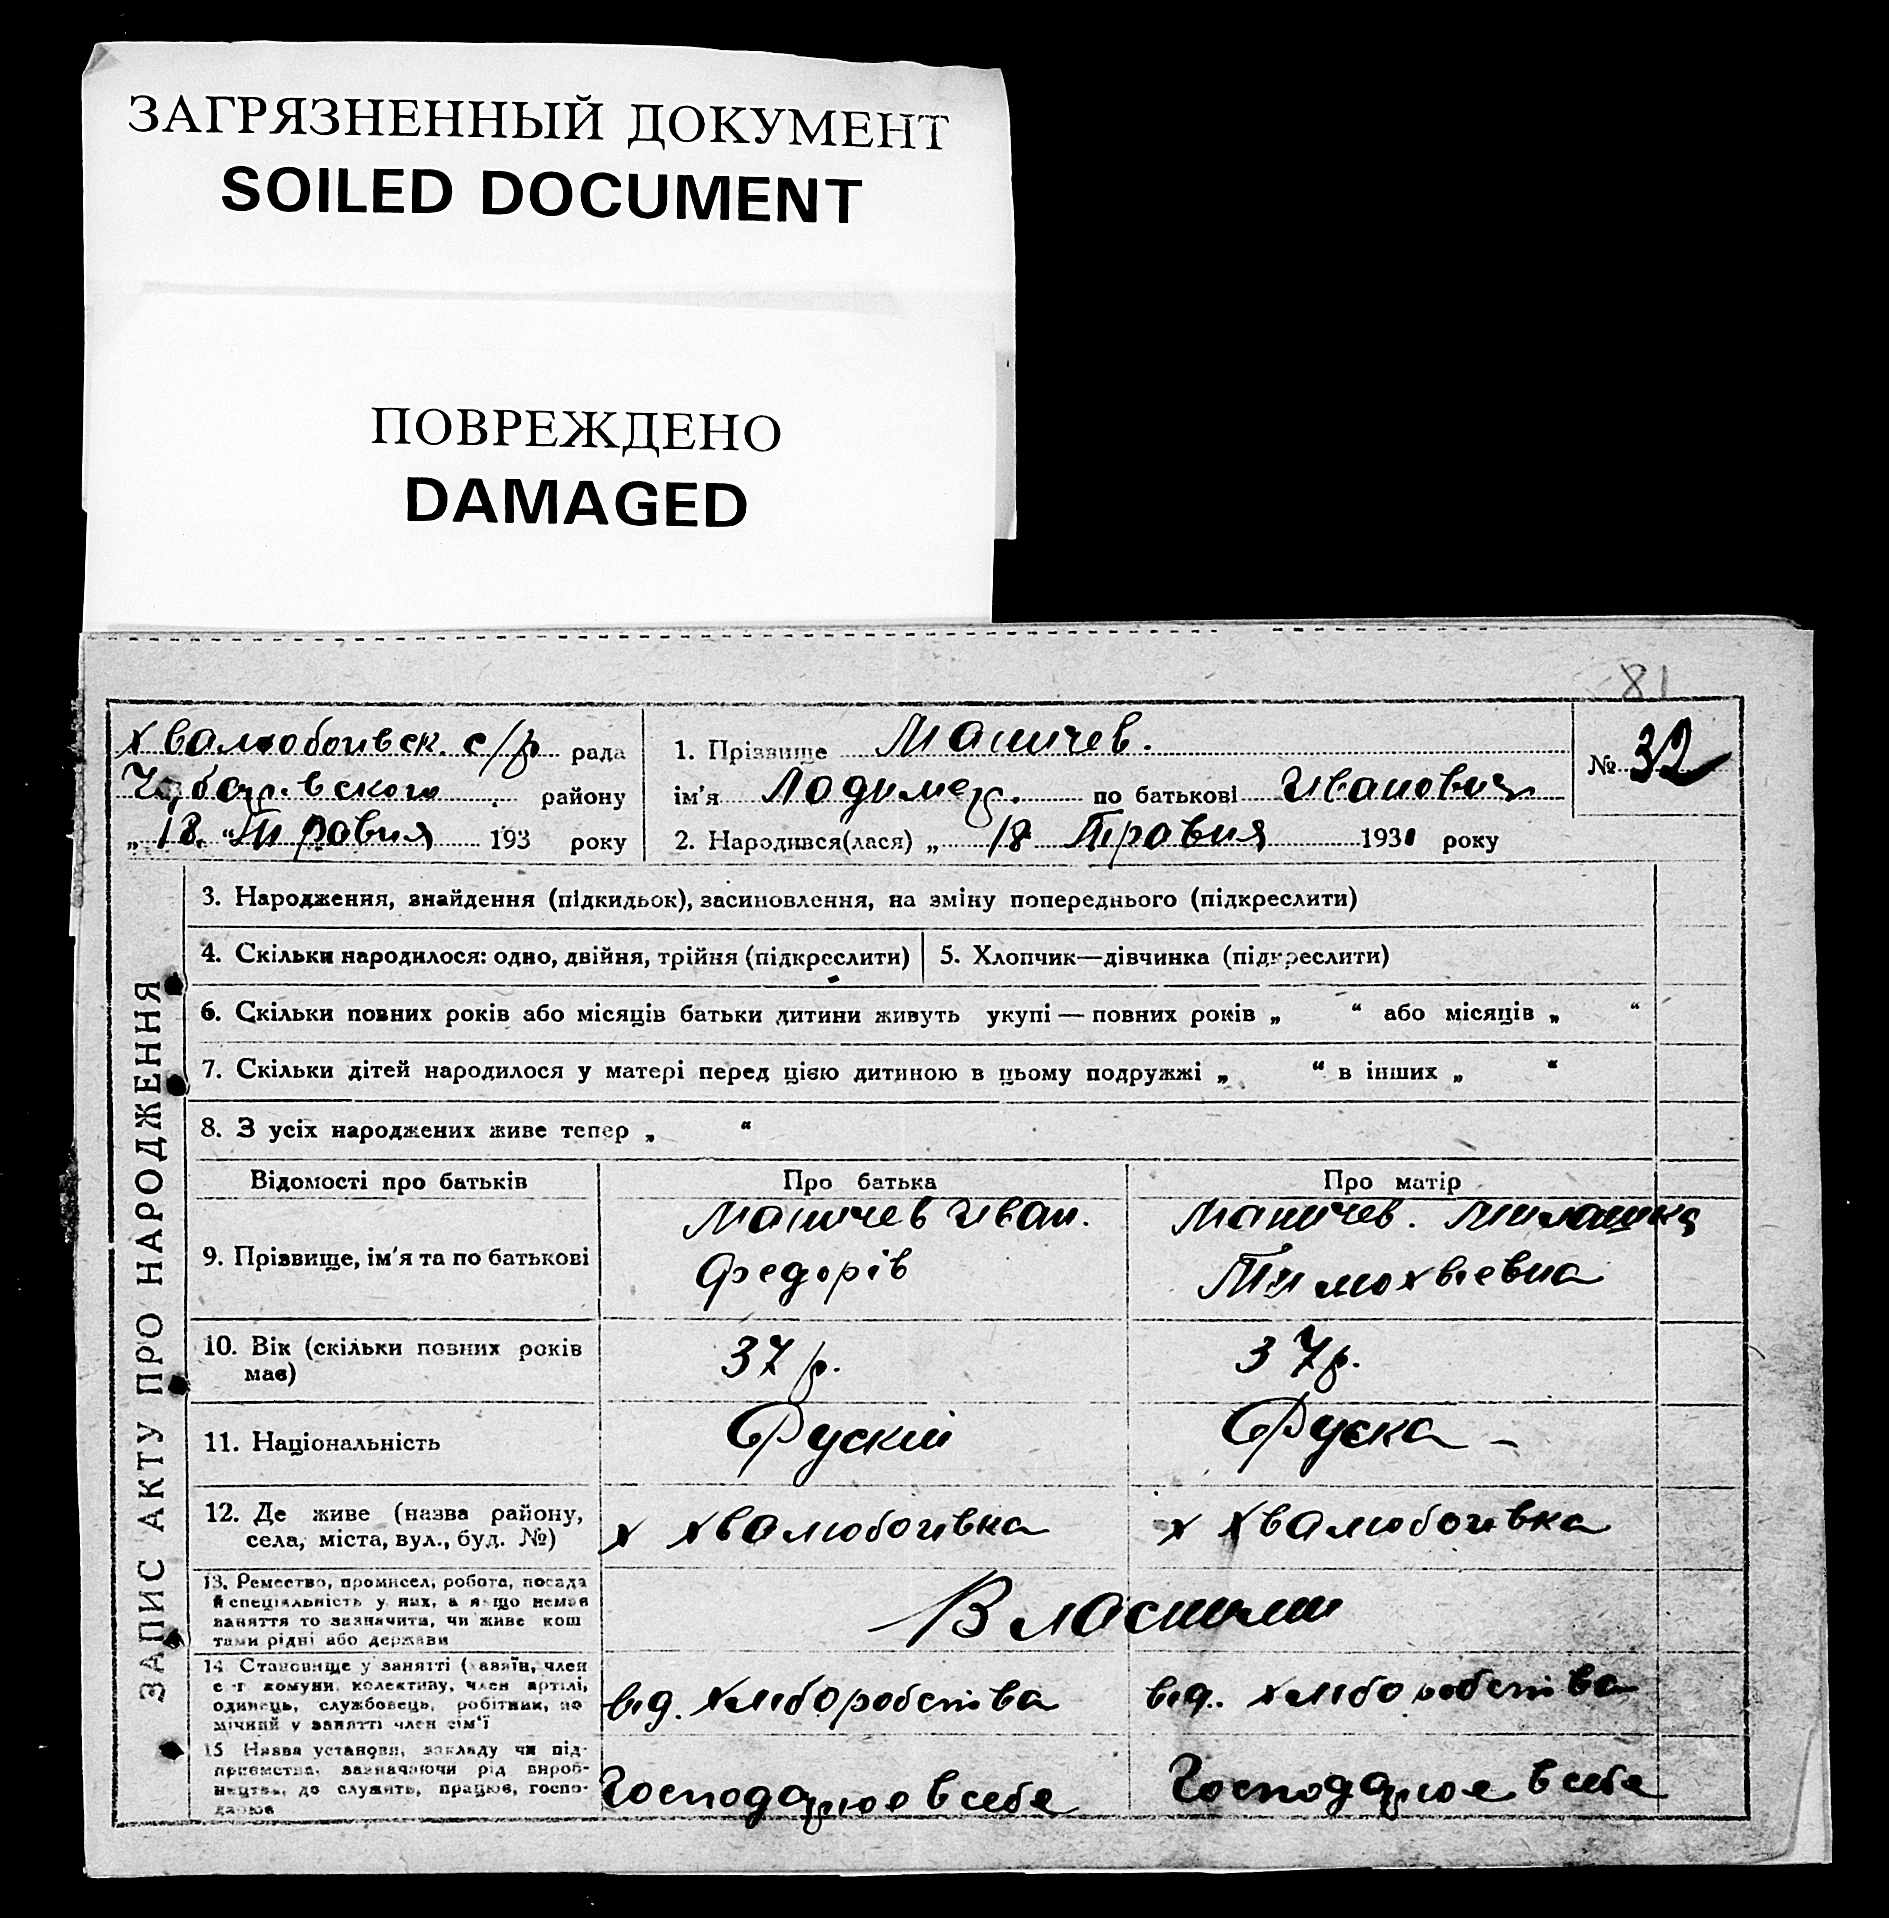 ЗАГРЯЗНЕННЫЙ ДОКУМЕНТ
SOILED DOCUMENT
ПОВРЕЖДЕНО
DAMAGED
81
Хвалюбогивск. с/р рада
района району
„18." Травня 193 року
1. Прізвище Маничев.
ім'я Лодимер. по батькові Иванович
2. Народився(лася) „ 18 Травня 1930 року
№ 32
ЗАПИС АКТУ ПРО НАРОДЖЕННЯ
3. Народження, знайдення (підкидьок), засиновлення, на зміну попереднього (підкреслити)
4. Скільки народилося: одно, двійня, трійня (підкреслити)
5. Хлопчик—дівчинка (підкреслити)
6. Скільки повних років або місяців батьки дитини живуть укупі — повних років „ “ або місяців „ “
7. Скільки дітей народилося у матері перед цією дитиною в цьому подружжі „ “ в інших „ “
8. З усіх народжених живе тепер „ “
Відомості про батьків
Про батька
Про матір
9. Прізвище, ім'я та по батькові
Маничев Иван.
Федорів
Маничев. Милашка
Тимохвіевна
10. Вік (скільки повних років
має)
37 р.
37 р.
11. Національність
Руский
Руска –
12. Де живе (назва району,
села, міста, вул., буд. №)
х Хвалюбогивка
х Хвалюбогивка
13. Ремество, промисел, робота, посада
й спеціяльність у них, а якщо немає
заняття то зазначити, чи живе кош
тами рідні або держави
Власними
14 Становище у занятті (хазяїн, член
с-г комуни, колективу, член артілі,
одинець, службовець, робітник, по
мічний у занятті член сім'ї
від. хліборобства
від. хліборобства
15 Назва установи, закладу чи під-
приємства, зазначаючи рід вироб-
ництва, де служить, працює, госпо-
дарює
Господарює в себе
Господарює в себе